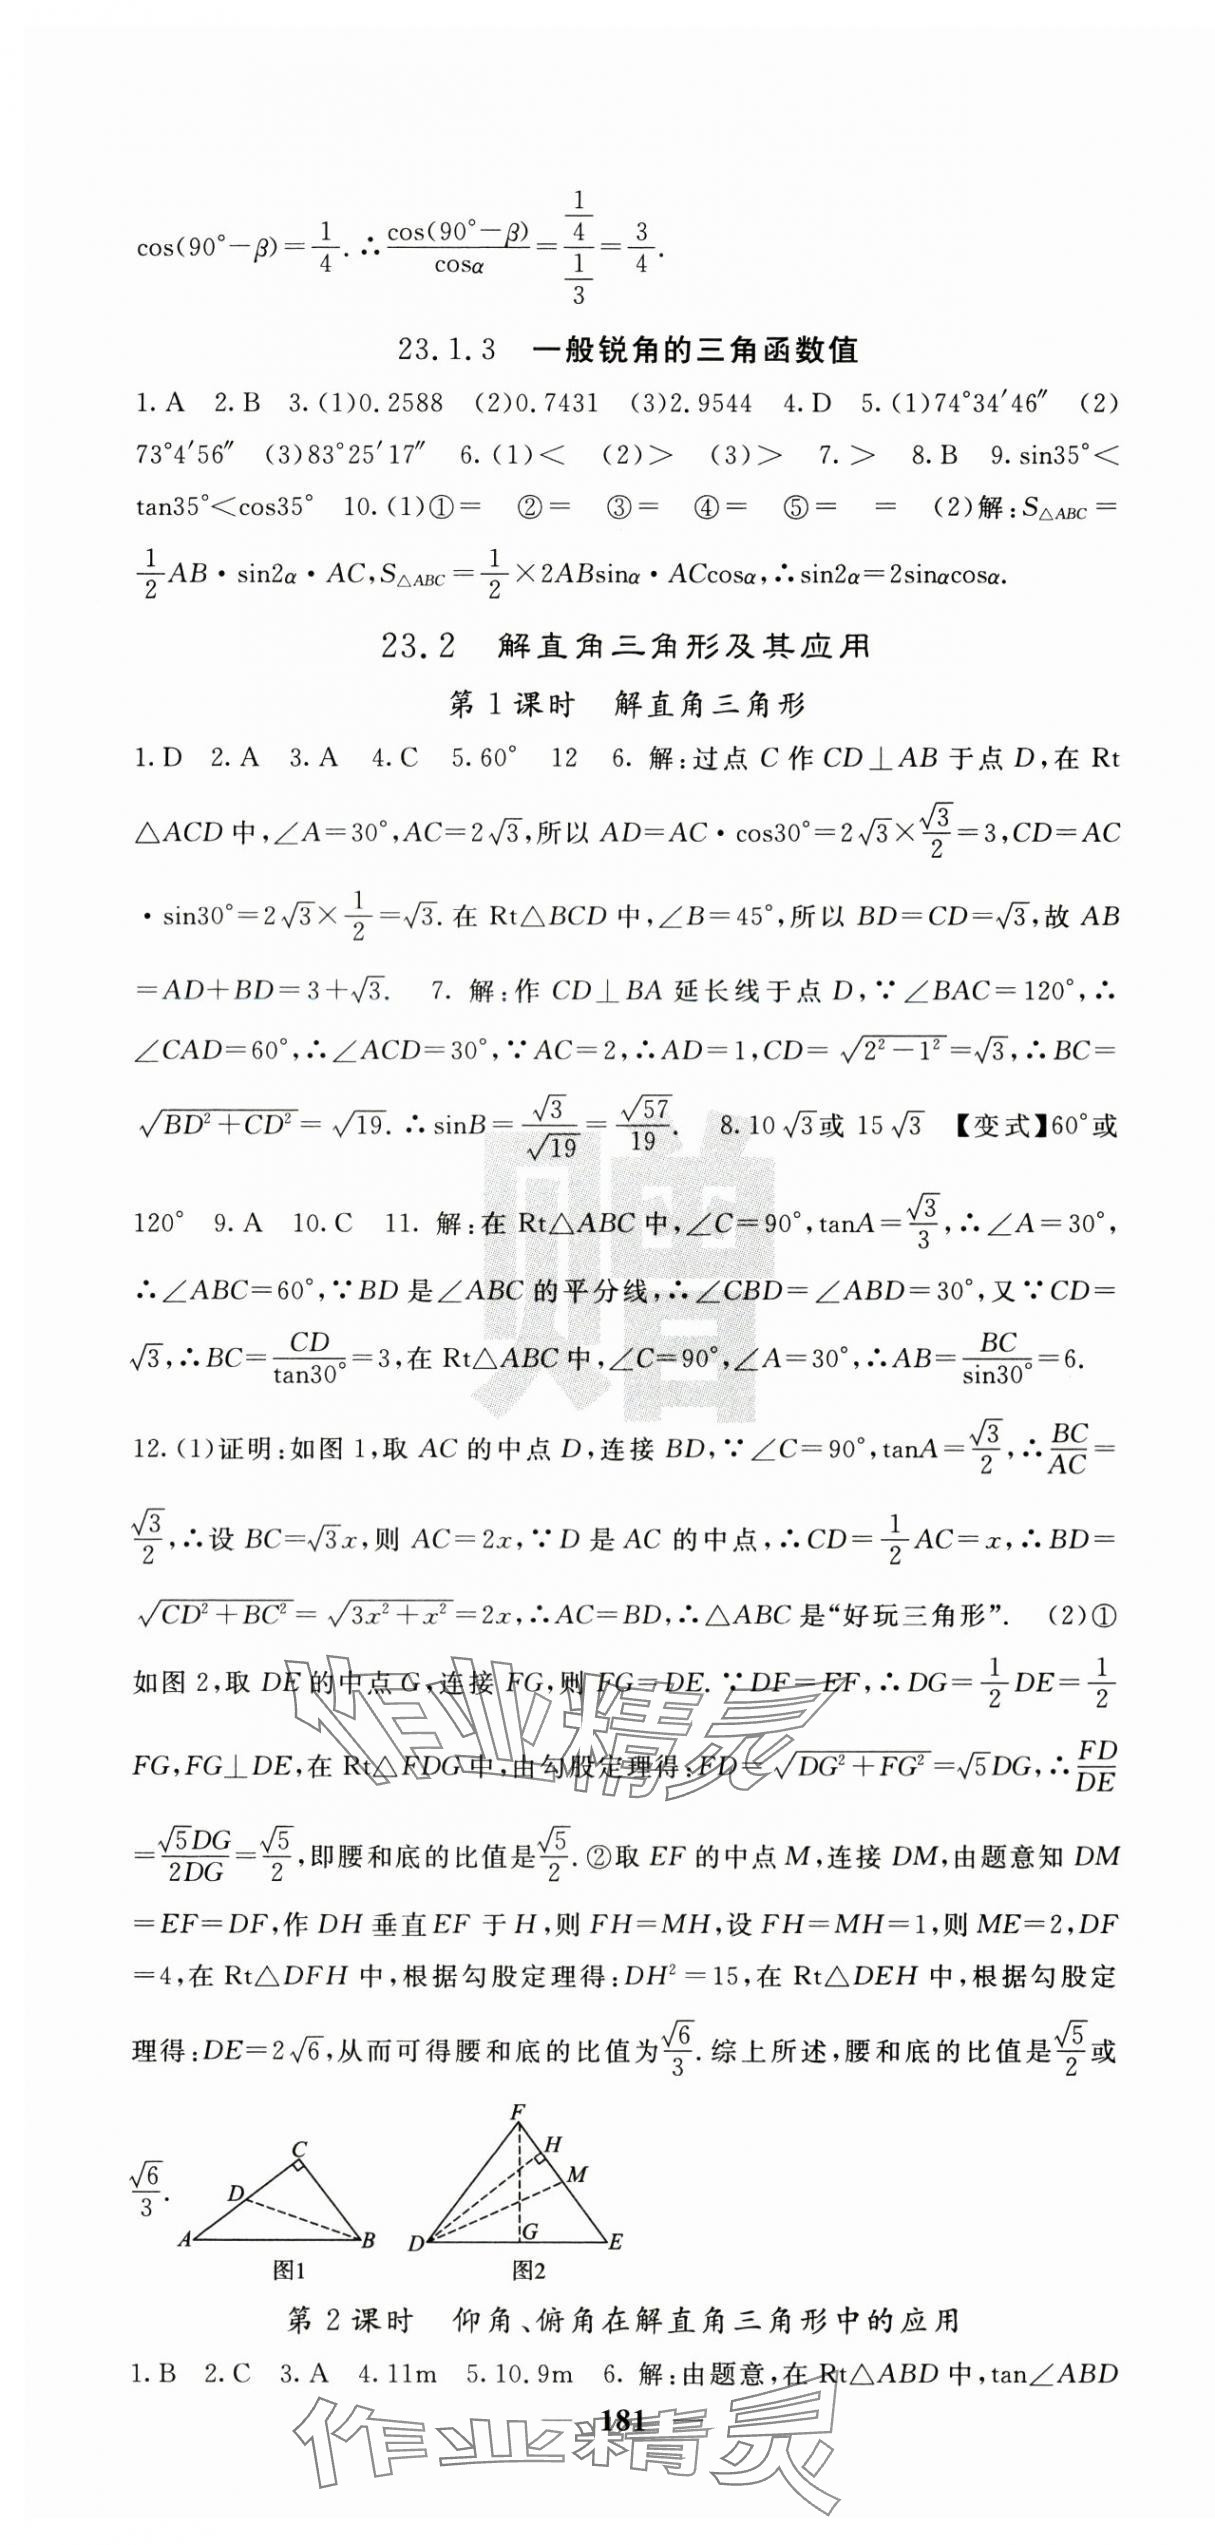 cos(90°－β)＝1/4.∴cos(90°－β)/cosα＝(1/4)/(1/3)＝3/4.
23.1.3 一般锐角的三角函数值
1.A 2.B 3.(1)0.2588 (2)0.7431 (3)2.9544 4.D 5.(1)74°34′46″ (2)
73°4′56″ (3)83°25′17″ 6.(1)＜ (2)＞ (3)＞ 7.＞ 8.B 9.sin35°＜
tan35°＜cos35° 10.(1)①＝ ②＝ ③＝ ④＝ ⑤＝ ＝ (2)解:S△ABC＝
1/2AB·sin2α·AC,S△ABC＝1/2×2ABsinα·ACcosα,∴sin2α＝2sinαcosα.
23.2 解直角三角形及其应用
第1课时 解直角三角形
1.D 2.A 3.A 4.C 5.60° 12 6.解:过点C作CD⊥AB于点D,在Rt
△ACD中,∠A＝30°,AC＝2√3,所以AD＝AC·cos30°＝2√3×√3/2＝3,CD＝AC
·sin30°＝2√3×1/2＝√3.在Rt△BCD中,∠B＝45°,所以BD＝CD＝√3,故AB
＝AD＋BD＝3＋√3. 7.解:作CD⊥BA延长线于点D,∵∠BAC＝120°,∴
∠CAD＝60°,∴∠ACD＝30°,∵AC＝2,∴AD＝1,CD＝√(2²－1²)＝√3,∴BC＝
√(BD²＋CD²)＝√19.∴sinB＝√3/√19＝√57/19. 8.10√3或15√3 【变式】60°或
120° 9.A 10.C 11.解:在Rt△ABC中,∠C＝90°,tanA＝√3/3,∴∠A＝30°,
∴∠ABC＝60°,∵BD是∠ABC的平分线,∴∠CBD＝∠ABD＝30°,又∵CD＝
√3,∴BC＝CD/tan30°＝3,在Rt△ABC中,∠C＝90°,∠A＝30°,∴AB＝BC/sin30°＝6.
12.(1)证明:如图1,取AC的中点D,连接BD,∵∠C＝90°,tanA＝√3/2,∴BC/AC＝
√3/2,∴设BC＝√3x,则AC＝2x,∵D是AC的中点,∴CD＝1/2AC＝x,∴BD＝
√(CD²＋BC²)＝√(3x²＋x²)＝2x,∴AC＝BD,∴△ABC是“好玩三角形”. (2)①
如图2,取DE的中点G,连接FG,则FG＝DE.∵DF＝EF,∴DG＝1/2DE＝1/2
FG,FG⊥DE,在Rt△FDG中,由勾股定理得:FD＝√(DG²＋FG²)＝√5DG,∴FD/DE
＝√5DG/2DG＝√5/2,即腰和底的比值是√5/2.②取EF的中点M,连接DM,由题意知DM
＝EF＝DF,作DH垂直EF于H,则FH＝MH,设FH＝MH＝1,则ME＝2,DF
＝4,在Rt△DFH中,根据勾股定理得:DH²＝15,在Rt△DEH中,根据勾股定
理得:DE＝2√6,从而可得腰和底的比值为√6/3.综上所述,腰和底的比值是√5/2或
√6/3.
A B C D
图1
D E F G H M
图2
第2课时 仰角、俯角在解直角三角形中的应用
1.B 2.C 3.A 4.11m 5.10.9m 6.解:由题意,在Rt△ABD中,tan∠ABD
181
赠
作业精灵
作业精灵